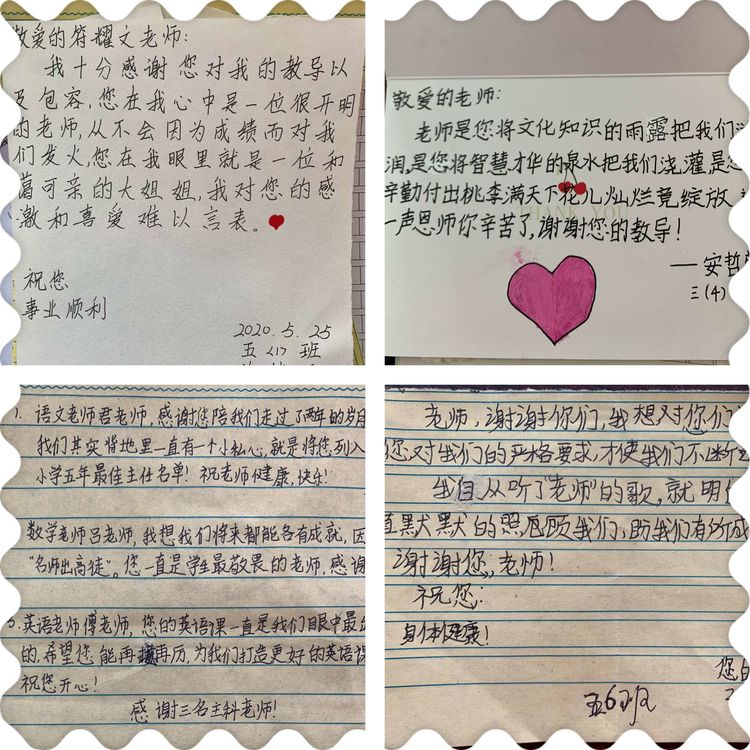 敬爱的符耀文老师:
我十分感谢您对我的教导以
及包容,您在我心中是一位很开明
的老师,从不会因为成绩而对我
们发火,您在我眼里就是一位和
蔼可亲的大姐姐,我对您的感
激和喜爱难以言表。
祝您
事业顺利
2020.5.25
五<1>班
敬爱的老师:
老师是您将文化知识的雨露把我们
润,是您将智慧才华的泉水把我们浇灌是
辛勤付出桃李满天下花儿灿烂竟绽放
一声恩师你辛苦了,谢谢您的教导!
THANK YOU
——安哲
三(4)
1. 语文老师君老师,感谢您陪我们走过了两年的岁月
我们其实背地里一直有一个小私心,就是将您列入
小学五年最佳主任名单!祝老师健康,快乐!
数学老师吕老师,我想我们将来都能各有成就,因
“名师出高徒”。您一直是学生最敬畏的老师,感谢
3.英语老师傅老师,您的英语课一直是我们眼中最
的,希望您能再接再历,为我们打造更好的英语课
祝您开心!
感谢三名主科老师!
老师,谢谢你们,我想对您们
您对我们的严格要求,才使我们不断
我自从听了“老师”的歌,就明
直默默的照顾我们,助我们有所成
谢谢您,老师!
祝您:
身体健康!
您
五6班